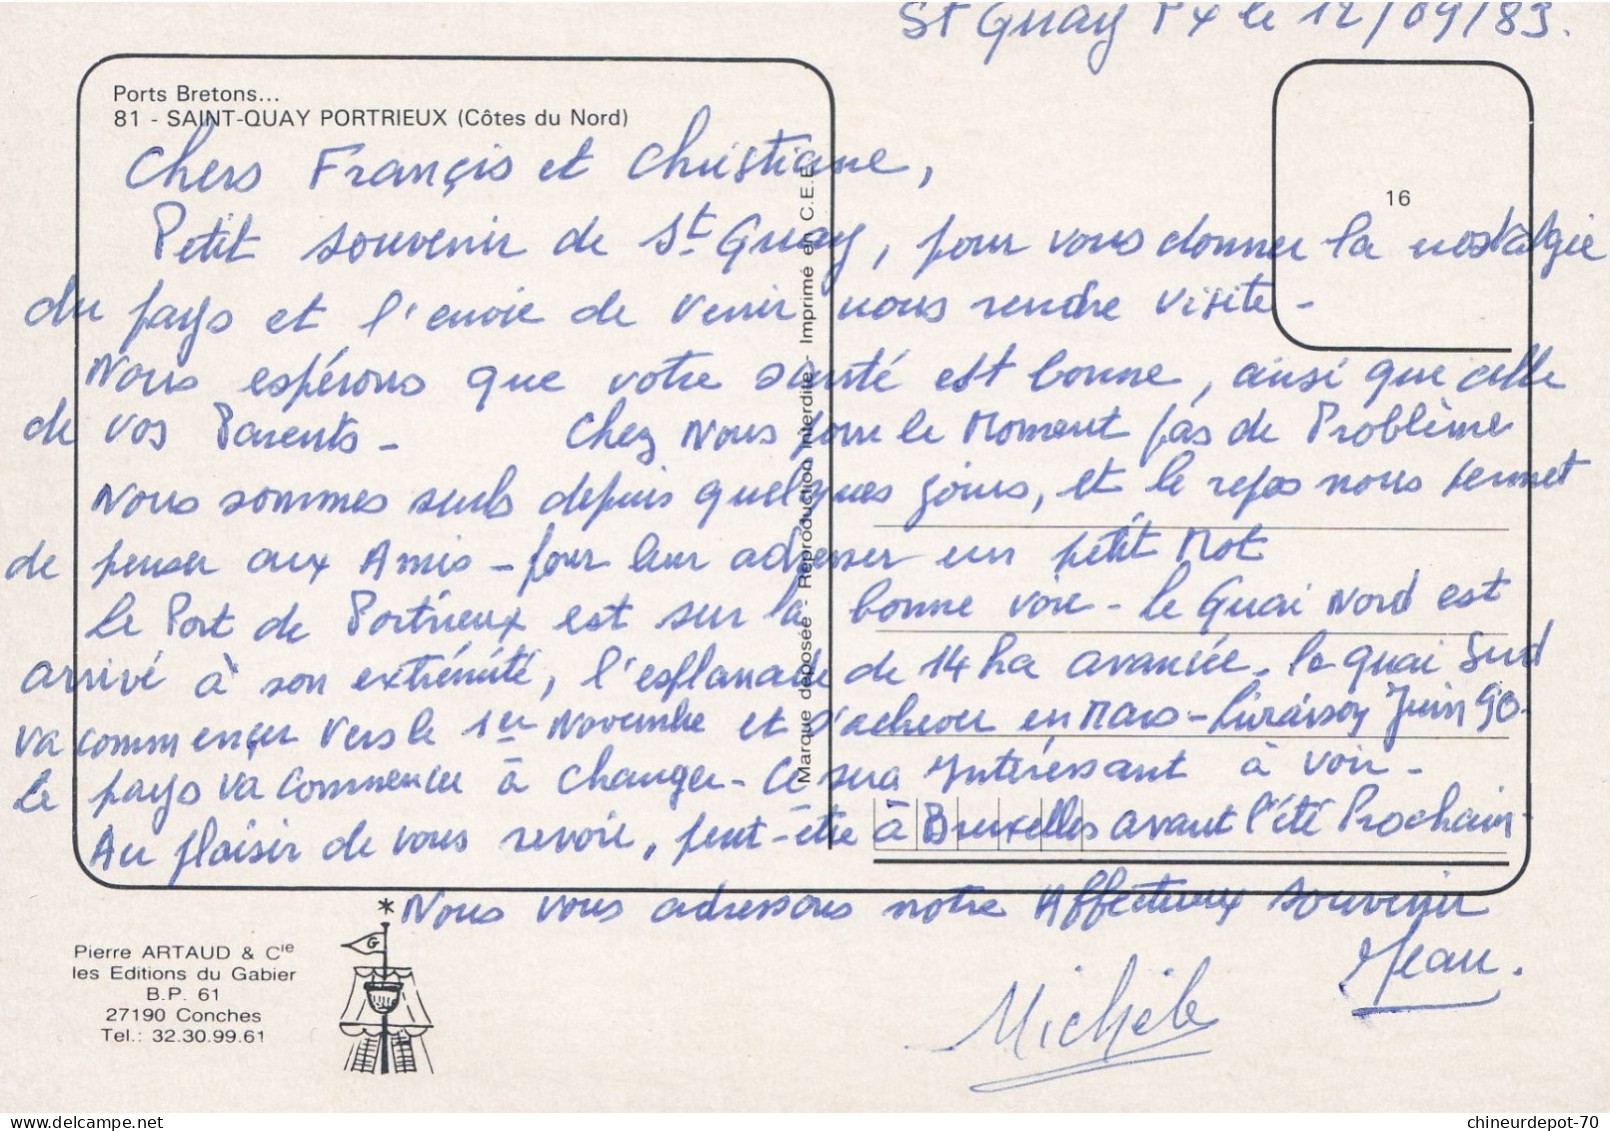 St Quay Px le 12/09/89.
Ports Bretons...
81 - SAINT-QUAY PORTRIEUX (Côtes du Nord)
16
Chers François et Christiane,
Petit souvenir de St Quay, pour vous donner la nostalgie
du pays et l'envie de venir nous rendre visite -
Nous espérons que votre santé est bonne, ainsi que celle
de vos Parents - Chez Nous pour le Moment pas de Problème
Nous sommes seuls depuis quelques jours, et le repos nous permet
de penser aux Amis - pour leur adresser un petit Mot
Le Port de Portrieux est sur la bonne voie - Le Quai Nord est
arrivé à son extrémité, l'esplanade de 14 ha avancée. le quai Sud
va commençer vers le 1er Novembre et s'achever en Mars - Livraison Juin 90.
Le pays va commencer à changer - Ce sera Intéressant à voir -
Au plaisir de vous revoir, peut-être à Bruxelles avant l'été Prochain -
*Nous vous adressons notre Affectueux souvenir
Jean.
Michèle
Marque déposée - Reproduction interdite - Imprimé en C.E.E.
G
Pierre ARTAUD & Cie
les Editions du Gabier
B.P. 61
27190 Conches
Tel.: 32.30.99.61
chineurdepot-70